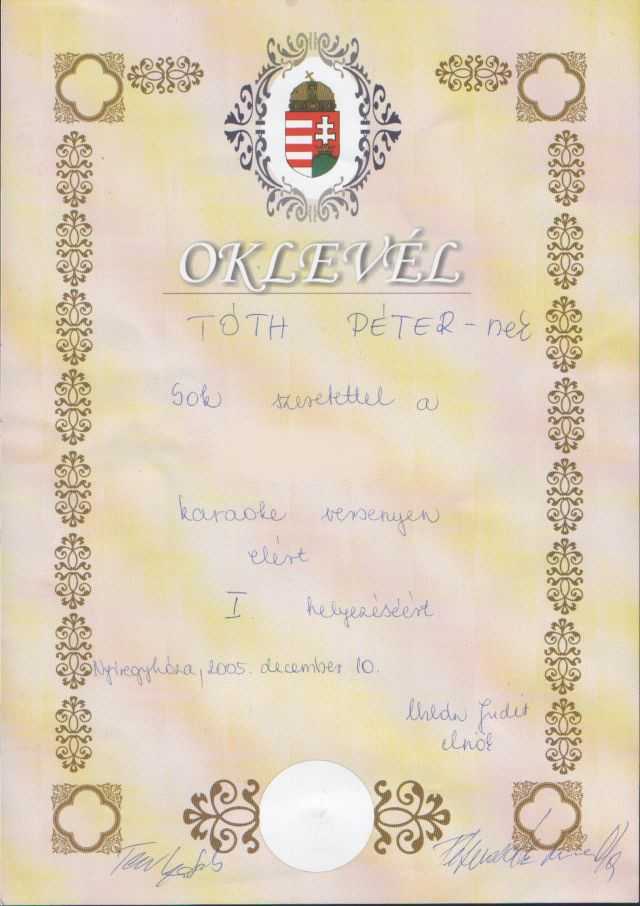 OKLEVÉL
TÓTH PÉTER-nek
Sok szeretettel a
karaoke versenyen
elért
I helyezéséért
Nyíregyháza, 2005. december 10.
Judit
elnök